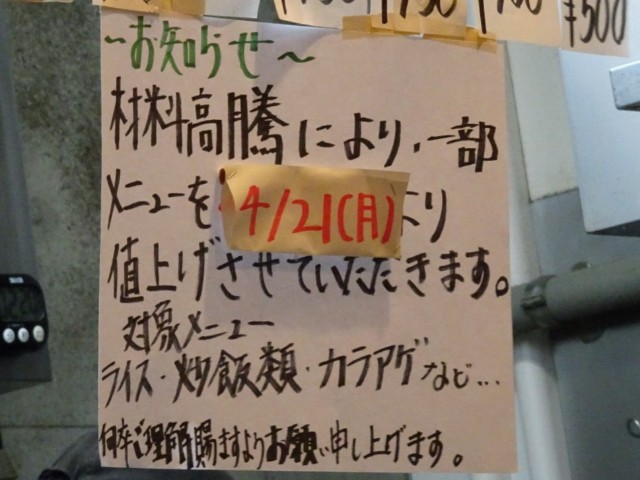 ¥500
~お知らせ~
材料高騰により、一部
メニューを4/21(月)より
値上げさせていただきます。
対象メニュー
ライス・炒飯類・カラアゲなど...
何卒ご理解賜ますようお願い申し上げます。